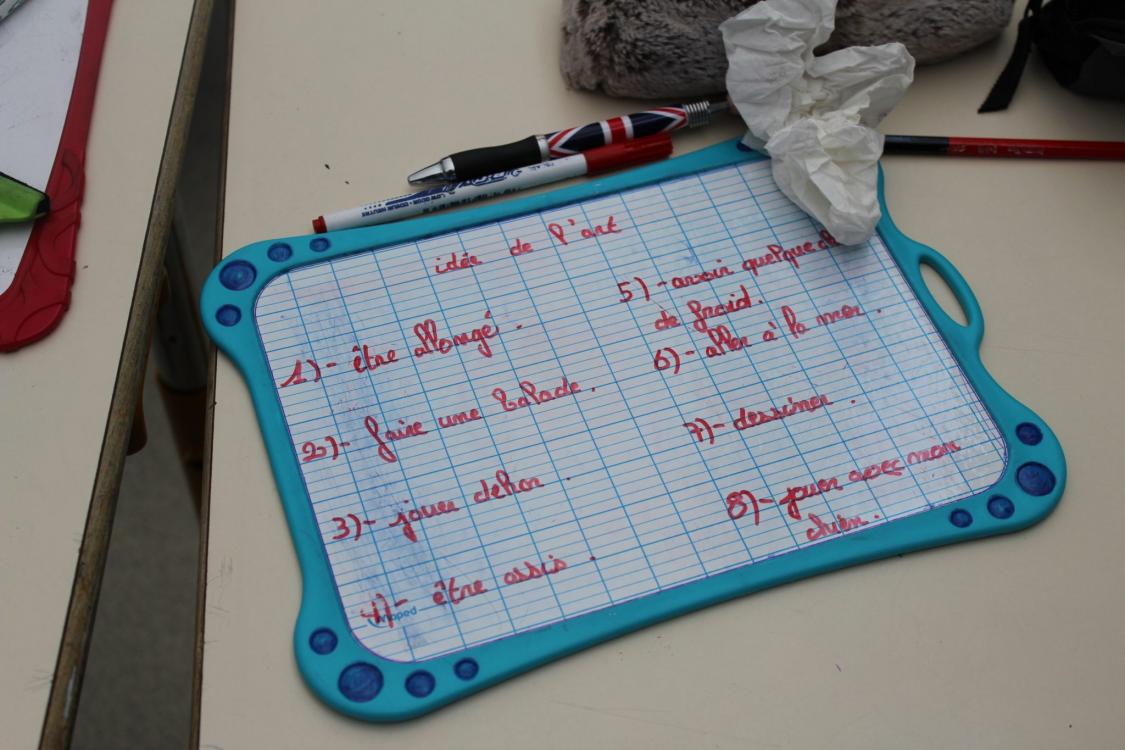 idée de l'art
1)- être allongé.
2)- faire une balade.
3)- jouer dehor.
4)- être assis.
5)- avoir quelque
de froid.
6)- aller à la mer.
7)- dessiner.
8)- jouer avec mon
chien.